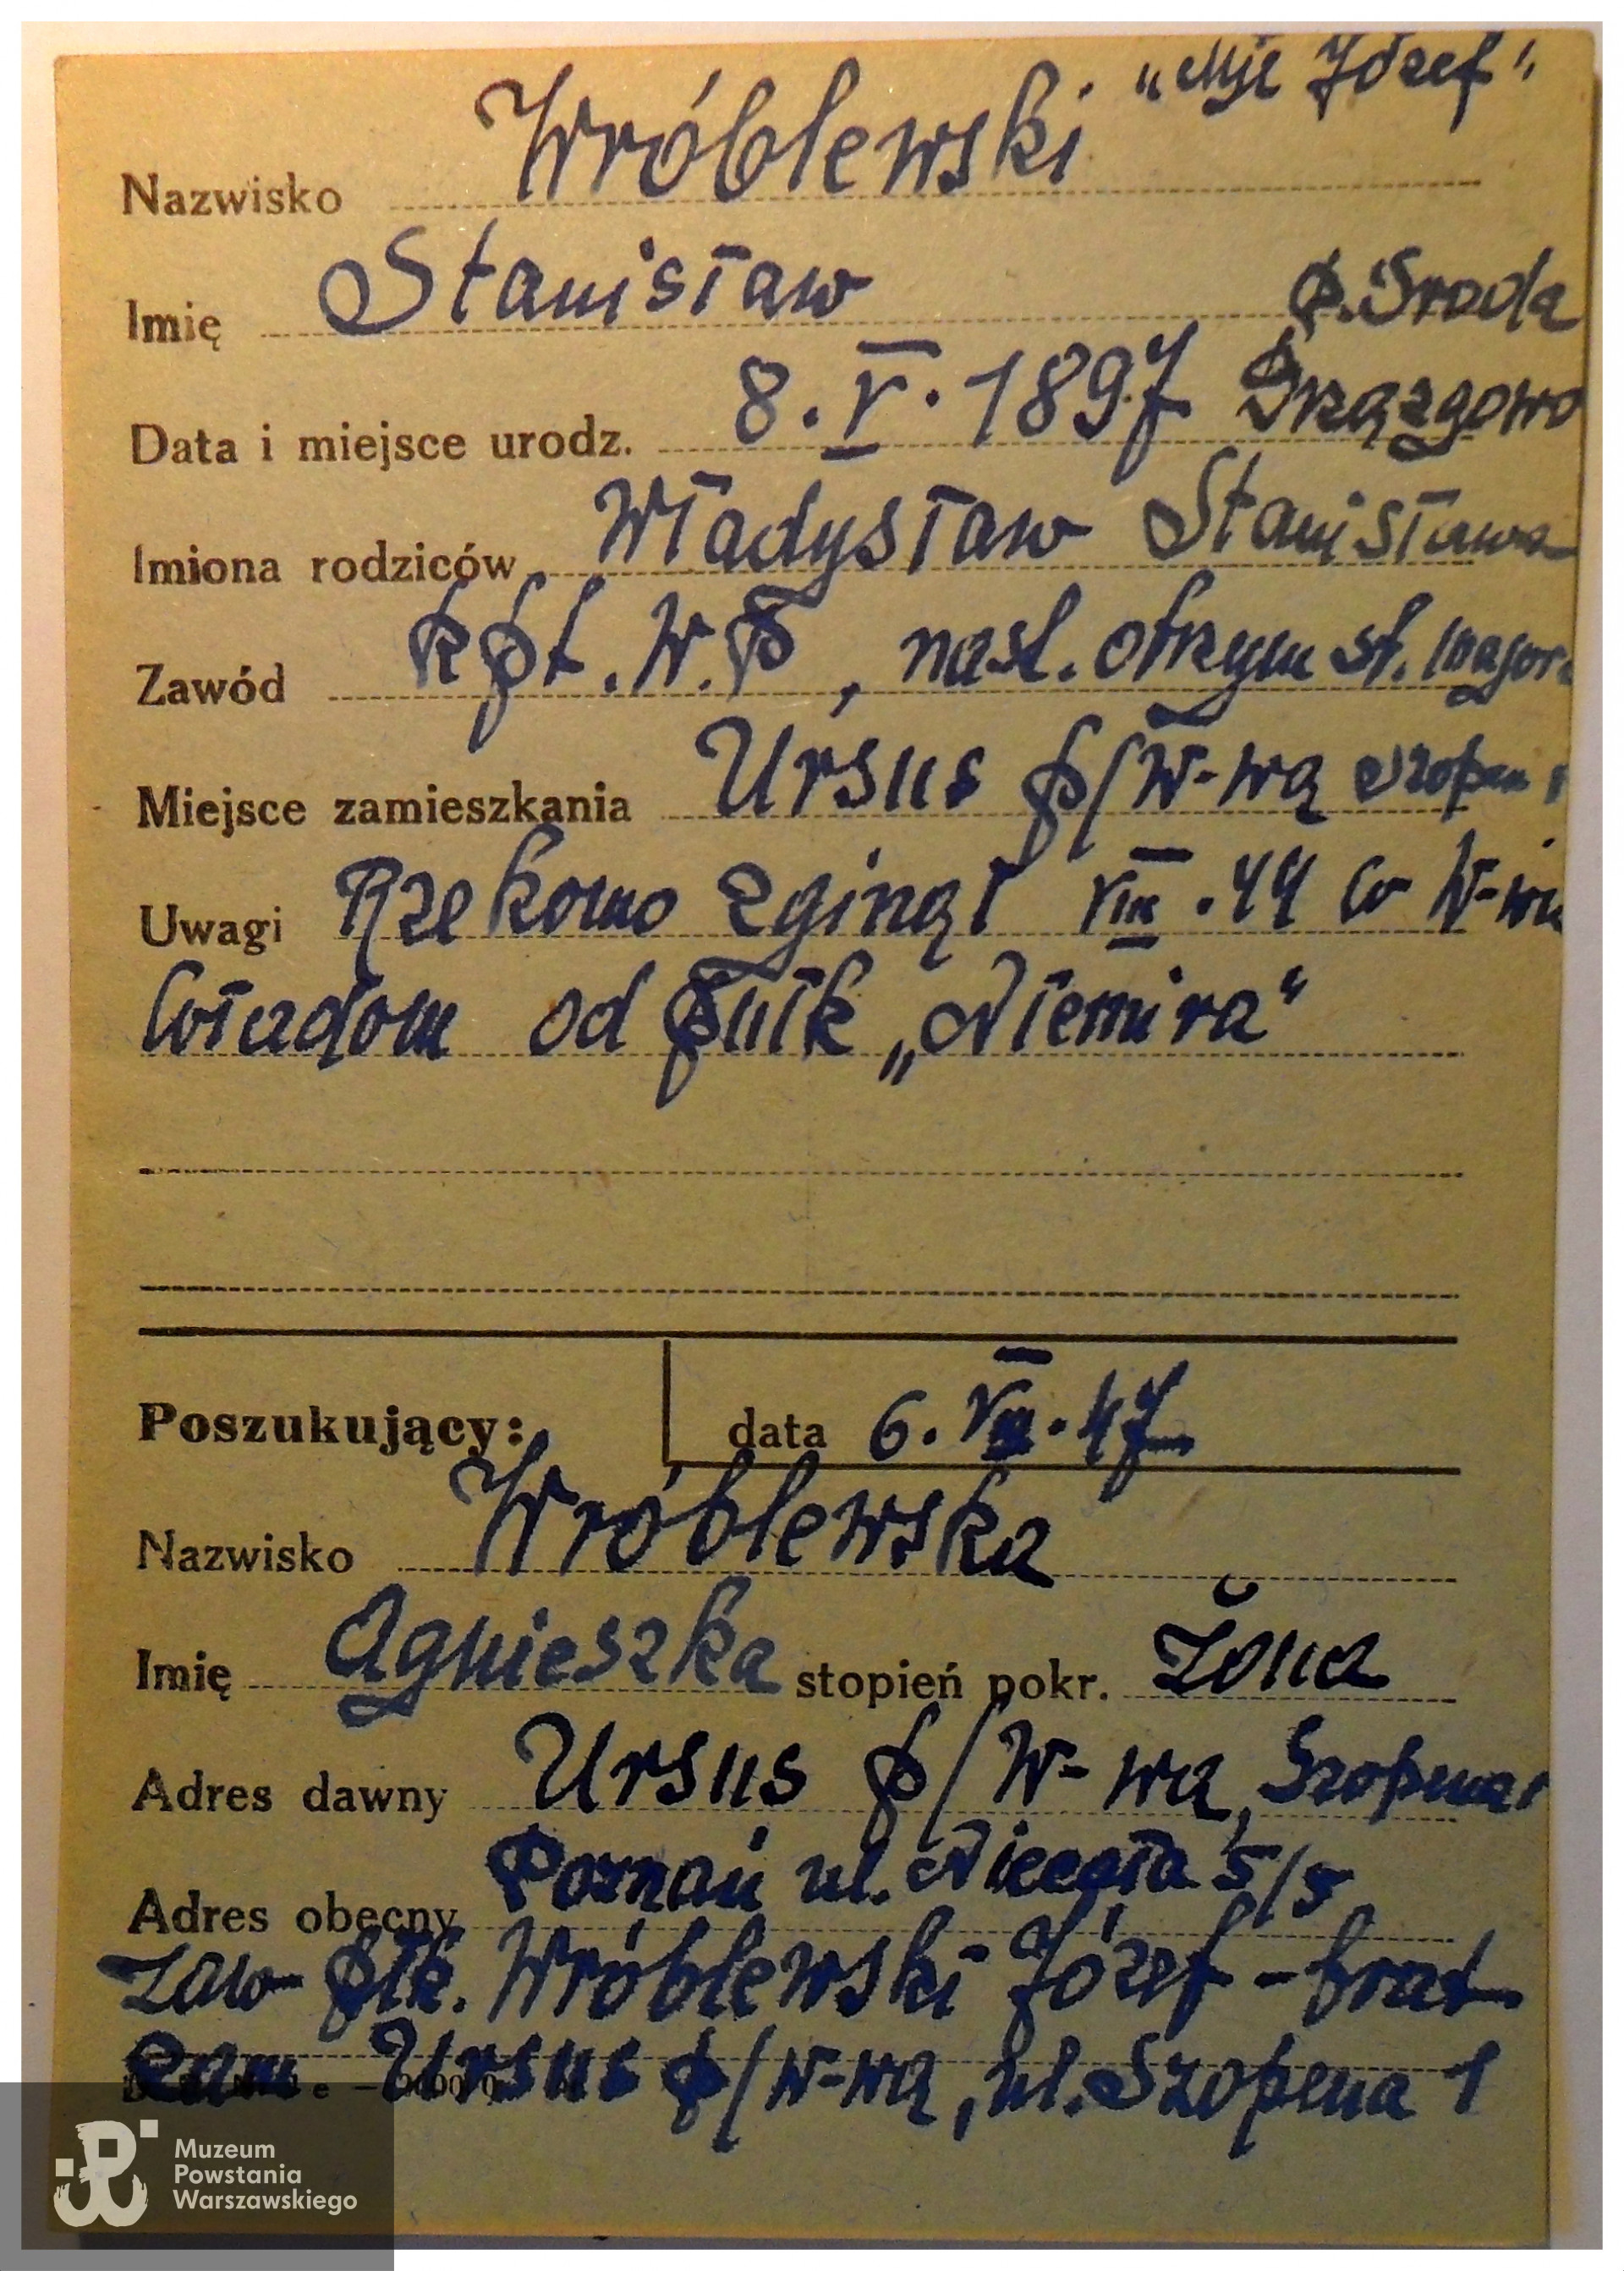 "Mjr Józef"
Nazwisko Wróblewski
Imię Stanisław p. Środa
Data i miejsce urodz. 8.V.1897
Imiona rodziców Władysław Stanisława
Zawód kpt. W.P, nast. otrzym st. majora
Miejsce zamieszkania Ursus p/W-wą Szopena 1
Uwagi Rzekomo zginął VIII.44 w W-wie
wiadom od Pułk „Niemira“
Poszukujący: data 6.VIII.47
Nazwisko Wróblewska
Imię Agnieszka stopień pokr. Żona
Adres dawny Ursus p/W-wą, Szopena 1
Adres obecny Poznań ul. Niecała 5/5
Zaw ppłk. Wróblewski Józef - brat
zam Ursus p/W-wą, ul. Szopena 1
Muzeum
Powstania
Warszawskiego